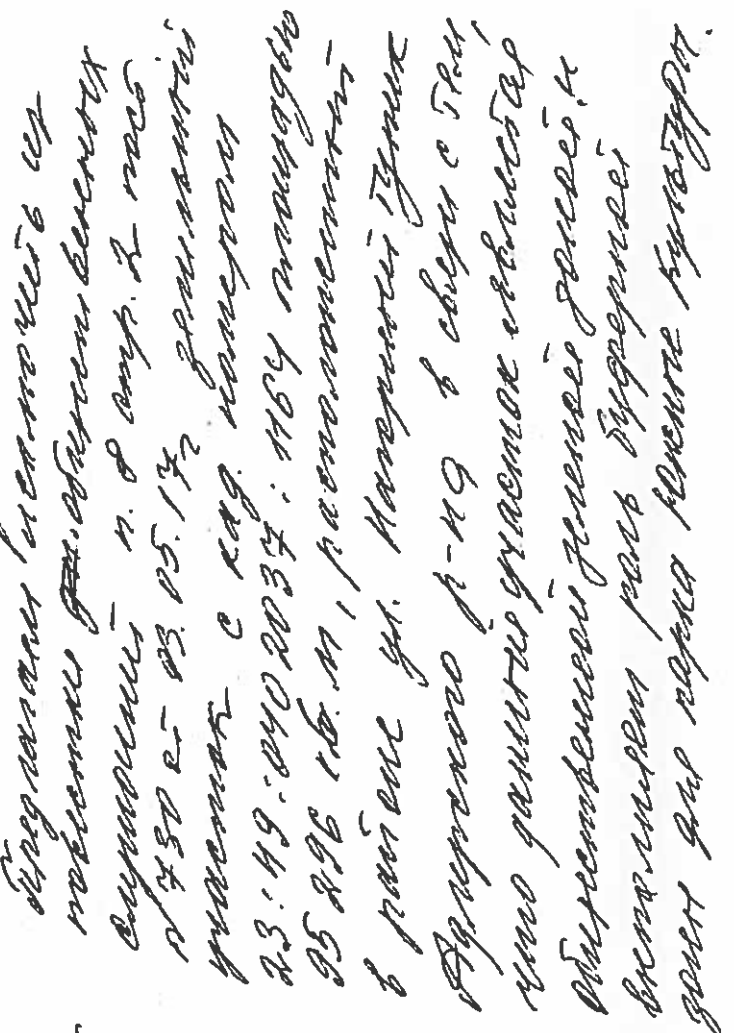 Предлагаем исключить из
тематики общественных
слушаний п. 8 стр. 2 пост
№ 730 от 03.05.17г земельный
участок с кад. номером
23:49:0402037:1164 площадью
95296 кв.м, расположенный
в районе ул. Нагорный Тупик
Адлерского р-на в связи с тем,
что данный участок является
общественной зеленой зоной и
выполняет роль буферной
зоны для парка Южные культуры.